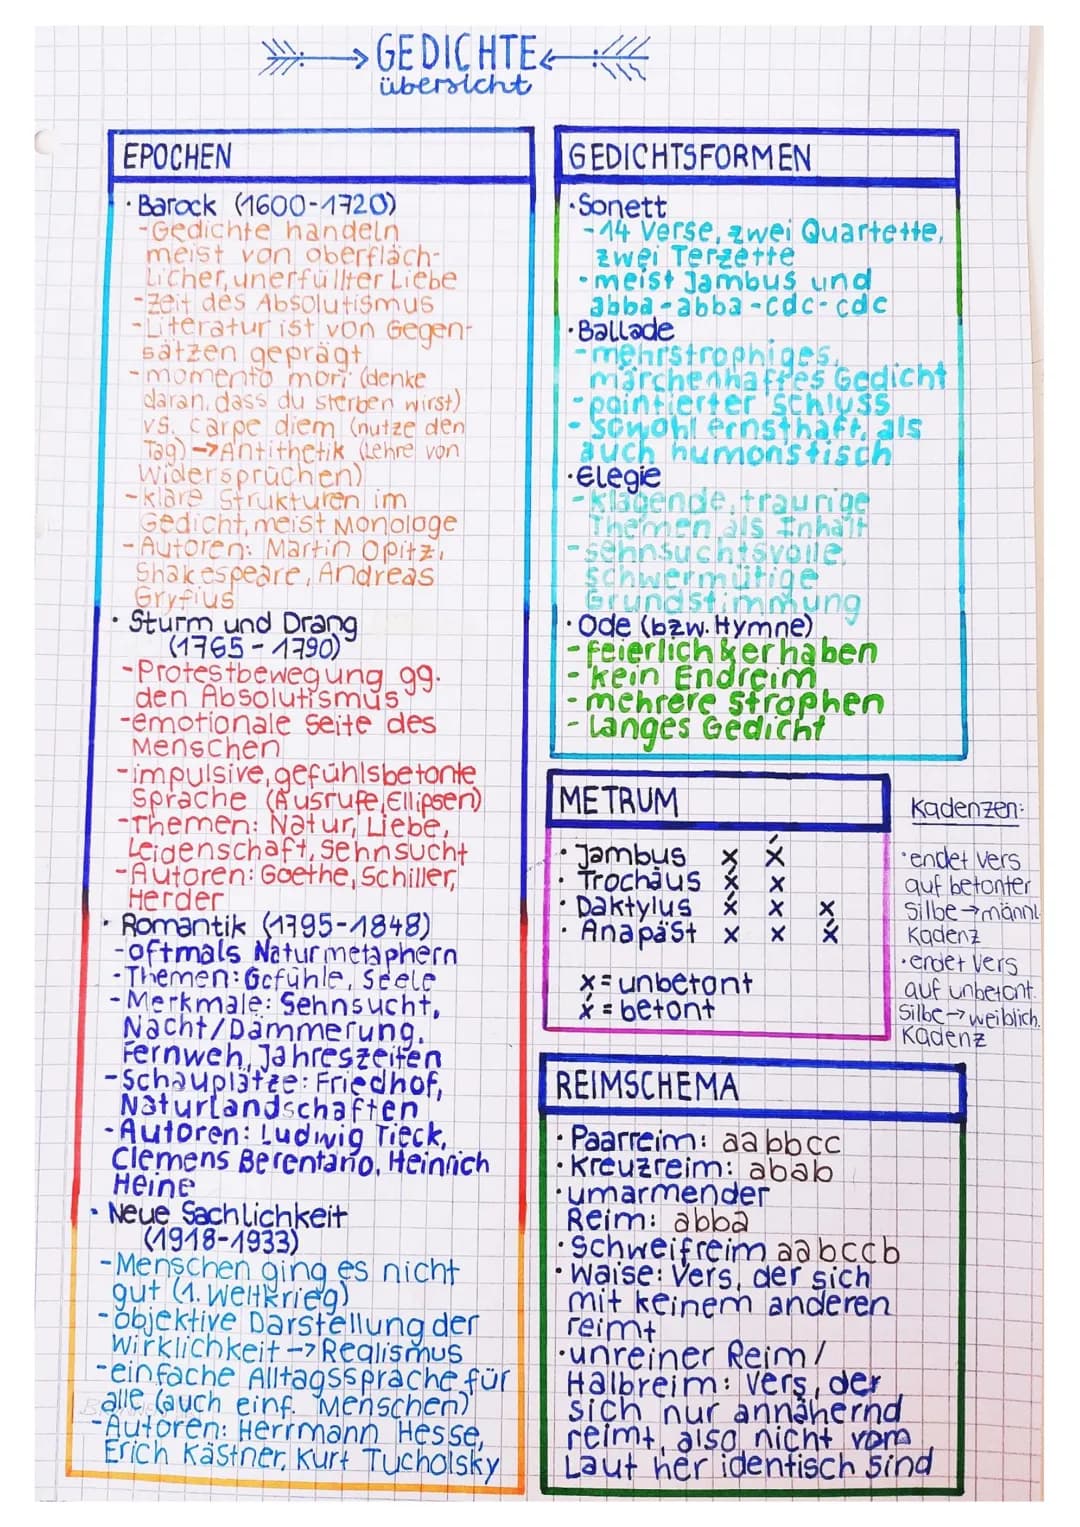 GEDICHTE
übersicht
EPOCHEN
· Barock (1600-1720)
-Gedichte handeln
meist von oberfläch-
licher, unerfüllter Liebe
-Zeit des Absolutismus
-Literatur ist von Gegen-
sätzen geprägt
-momento mori (denke
daran, dass du sterben wirst)
vs. carpe diem (nutze den
Tag) → Antithetik (Lehre von
Widersprüchen)
-klare Strukturen im
Gedicht, meist Monologe
-Autoren: Martin Opitz,
Shakespeare, Andreas
Gryfius
· Sturm und Drang
(1765-1790)
-Protestbewegung gg.
den Absolutismus
-emotionale Seite des
Menschen
-impulsive, gefühlsbetonte
Sprache (Ausrufe, Ellipsen)
-Themen: Natur, Liebe,
Leidenschaft, Sehnsucht
-Autoren: Goethe, Schiller,
Herder
· Romantik (1795-1848)
-oftmals Naturmetaphern
-Themen: Gefühle, Seele
-Merkmale: Sehnsucht,
Nacht/Dämmerung,
Fernweh, Jahreszeiten
-Schauplätze: Friedhof,
Naturlandschaften
-Autoren: Ludwig Tieck,
Clemens Berentano, Heinrich
Heine
· Neue Sachlichkeit
(1918-1933)
-Menschen ging es nicht
gut (1. Weltkrieg)
-objektive Darstellung der
Wirklichkeit → Realismus
-einfache Alltagssprache für
alle (auch einf. Menschen)
-Autoren: Herrmann Hesse,
Erich Kästner, Kurt Tucholsky
GEDICHTSFORMEN
· Sonett
-14 Verse, zwei Quartette,
zwei Terzette
· meist Jambus und
abba-abba-cdc-cdc
· Ballade
-mehrstrophiges,
märchenhaftes Gedicht
-pointierter Schluss
-sowohl ernsthaft, als
auch humoristisch
· Elegie
-klagende, traurige
Themen als Inhalt
-sehnsuchtsvolle,
schwermütige
Grundstimmung
· Ode (bzw. Hymne)
-feierlich & erhaben
-kein Endreim
-mehrere Strophen
-langes Gedicht
METRUM
· Jambus x x́
· Trochäus x́ x
· Daktylus x́ x x
· Anapäst x x x́
x = unbetont
x́ = betont
Kadenzen:
· endet Vers
auf betonter
Silbe → männl.
Kadenz
· endet Vers
auf unbetont.
Silbe → weiblich.
Kadenz
REIMSCHEMA
· Paarreim: aabbcc
· Kreuzreim: abab
· umarmender
Reim: abba
· Schweifreim aabccb
· Waise: Vers, der sich
mit keinem anderen
reimt
· unreiner Reim/
Halbreim: Vers, der
sich nur annähernd
reimt, also nicht vom
Laut her identisch sind